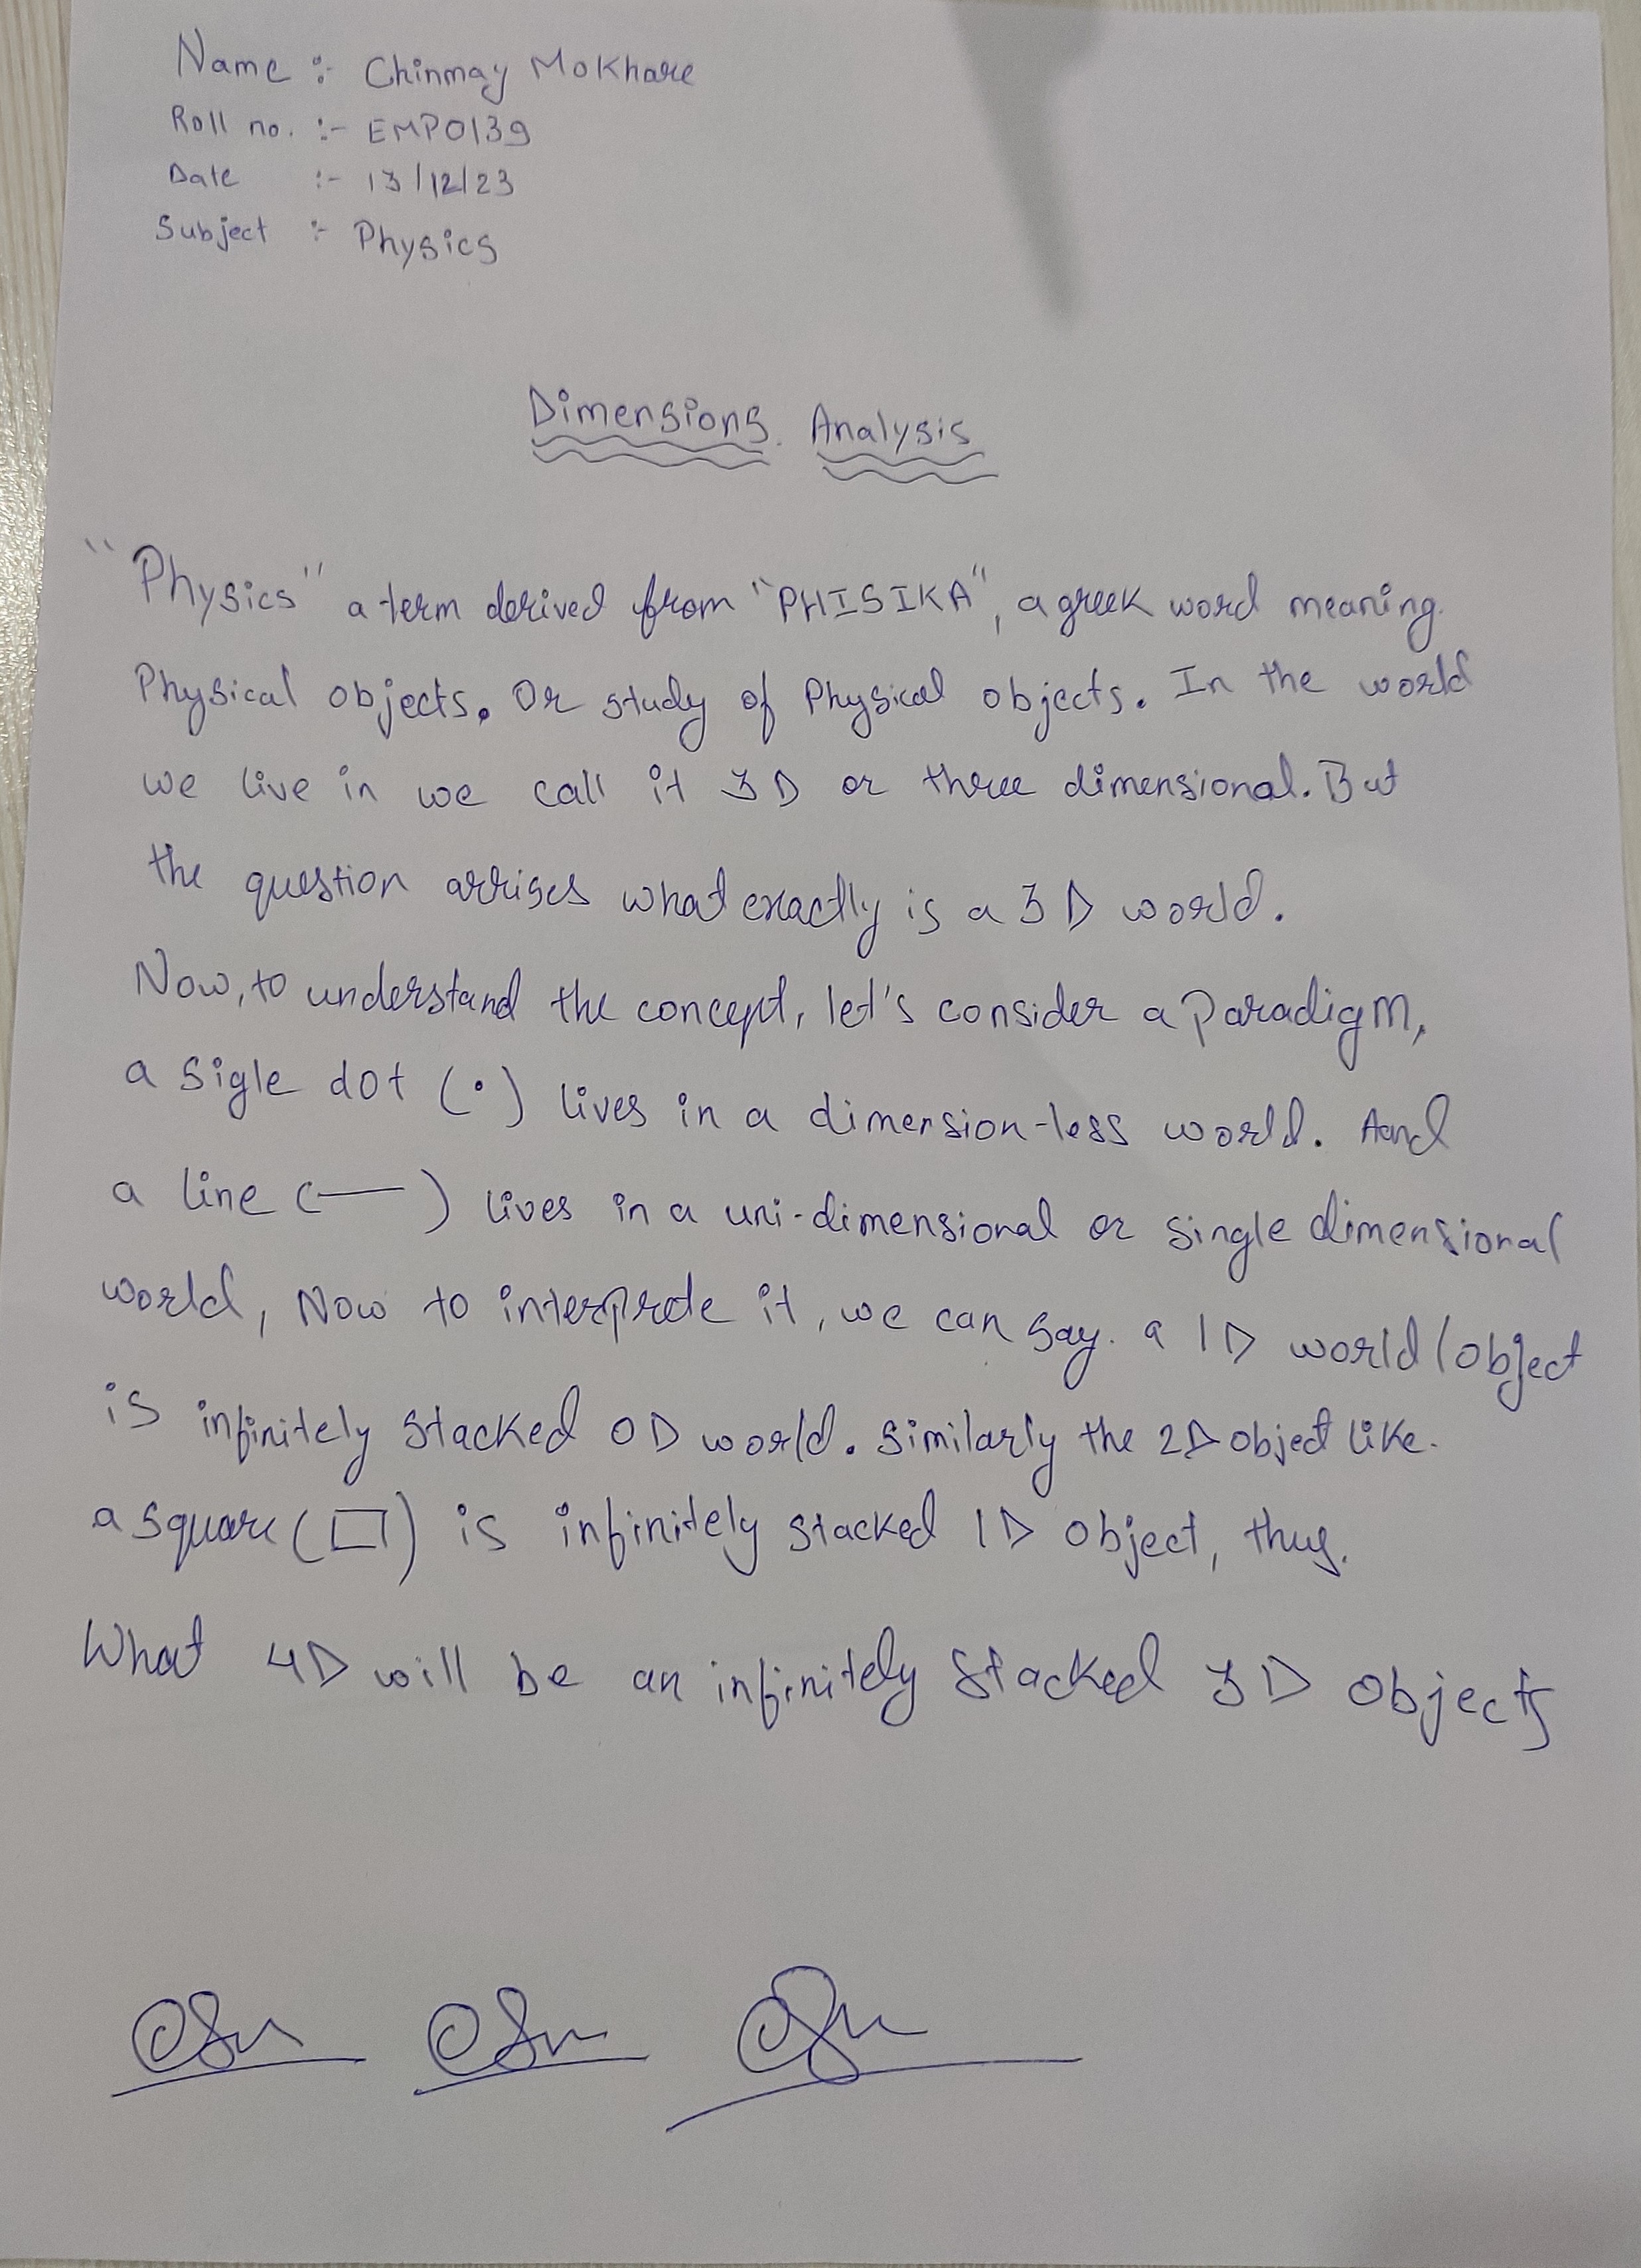 Name :- Chinmay Mokhare
Roll no. :- EMP0139
Date :- 13/12/23
Subject :- Physics
Dimensions Analysis
"Physics" a term derived from "PHISIKA", a greek word meaning
Physical objects. Or study of Physical objects. In the world
we live in we call it 3D or three dimensional. But
the question arrises what exactly is a 3D world.
Now, to understand the concept, let's consider a Paradigm,
a sigle dot (•) lives in a dimension-less world. And
a line (—) lives in a uni-dimensional or single dimensional
world, Now to interprete it, we can say. a 1D world/object
is infinitely stacked 0D world. Similarly the 2D object like.
a square (□) is infinitely stacked 1D object, thus.
What 4D will be an infinitely stacked 3D objects